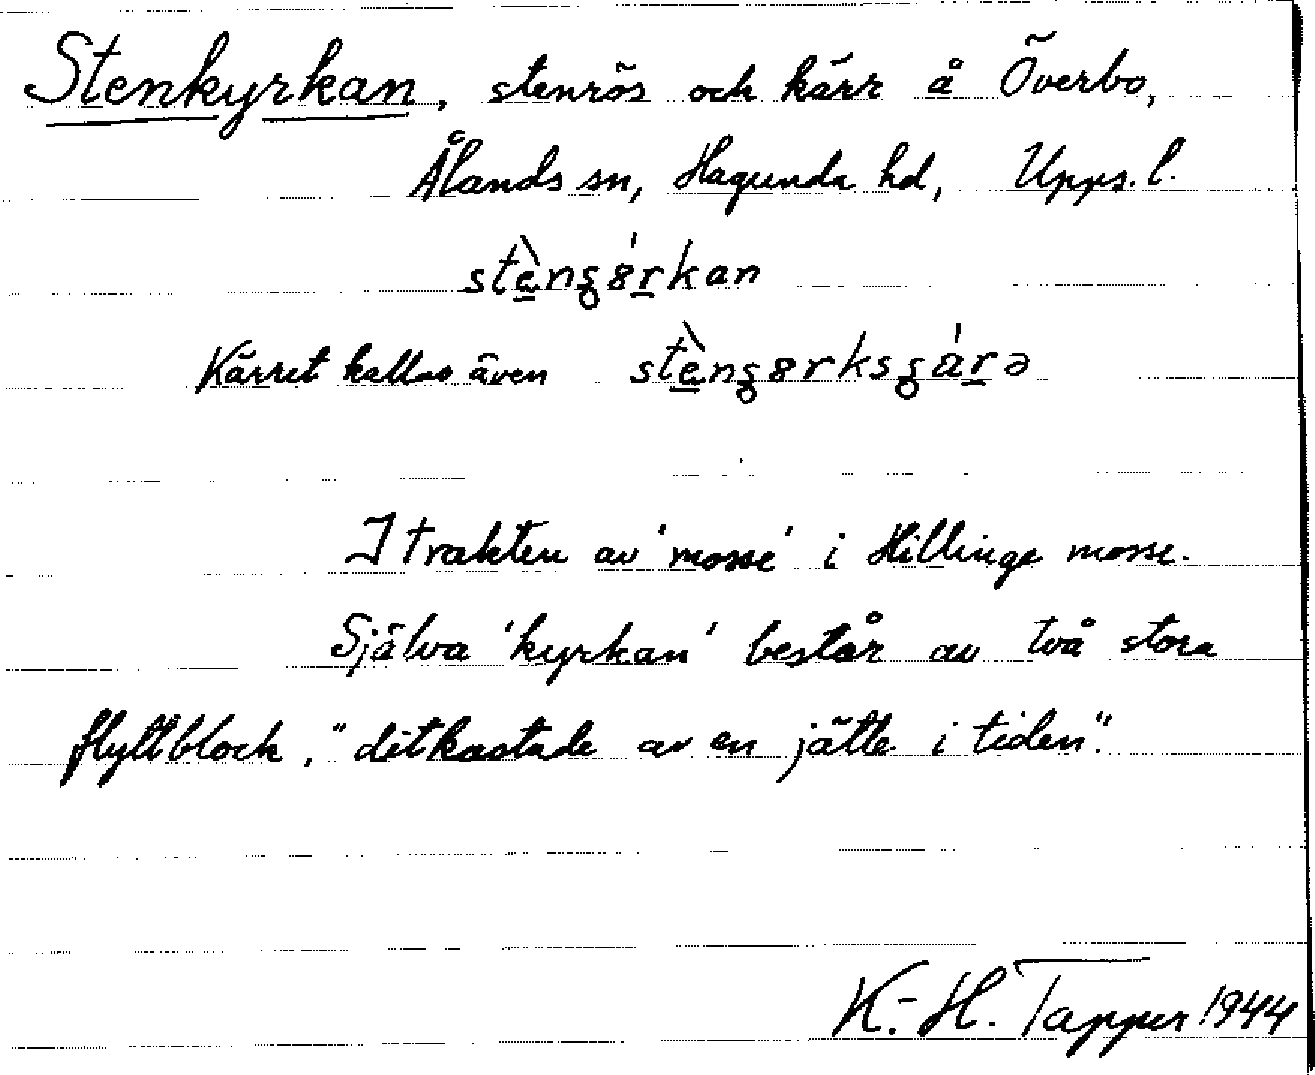 Stenkyrkan, stenrös och kärr å Överbo,
Ålands sn, Hagunda hd, Upps. l.
stèn̡ȣ́rkan
Kärret kallas även
I trakten av 'mosse' i Hillinge mosse.
Själva 'kyrkan' består av två stora
flyttblock, "ditkastade av en jätte i tiden".
K.-H. Tapper 1944